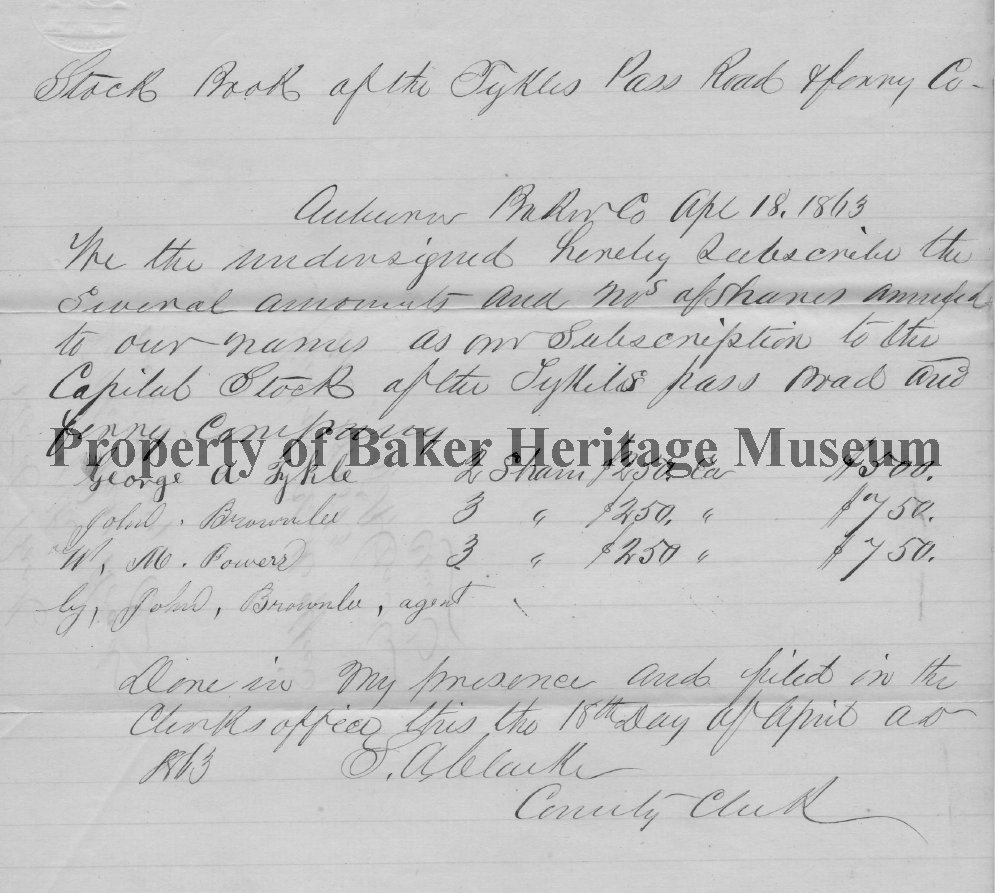 Stock Book of the Tykles Pass Road & ferry Co-
Auburn Baker Co Apl 18. 1863
We the undersigned hereby Subscribe the
Several amounts and Nos of Shares annexed
to our names as our Subscription to the
Capital Stock of the Tykles pass road and
ferry Company
Property of Baker Heritage Museum
George A Tykle 2 Shares $250. Ea $500.
John. Brownlee 3 " $250. " $750.
W, M. Powers 3 " $250 " $750.
by, John, Brownlee, agent
Done in my presence and filed in the
Clerks office this the 18th Day of April AD
1863 S. A Clarke
County Clerk